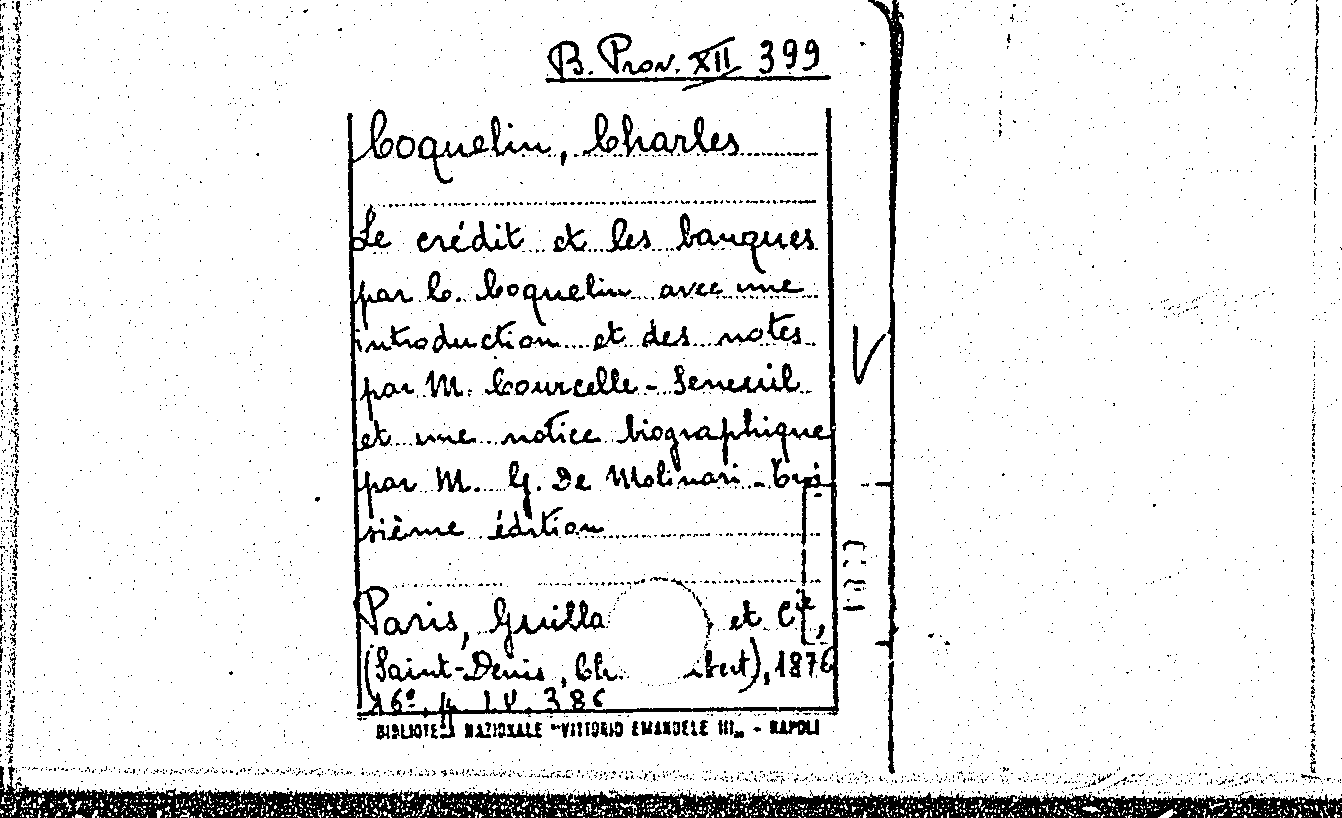 B. Prov. XII 399
Coquelin, Charles
Le crédit et les banques
par C. Coquelin avec une
introduction et des notes
par M. Courcelle-Seneuil
et une notice biographique
par M. G. De Molinari - Troi-
sième édition
Paris, Guilla et Cie,
(Saint-Denis, Ch. bert), 1876
16º, p. LV, 386
BIBLIOTECA NAZIONALE "VITTORIO EMANUELE III„ - NAPOLI